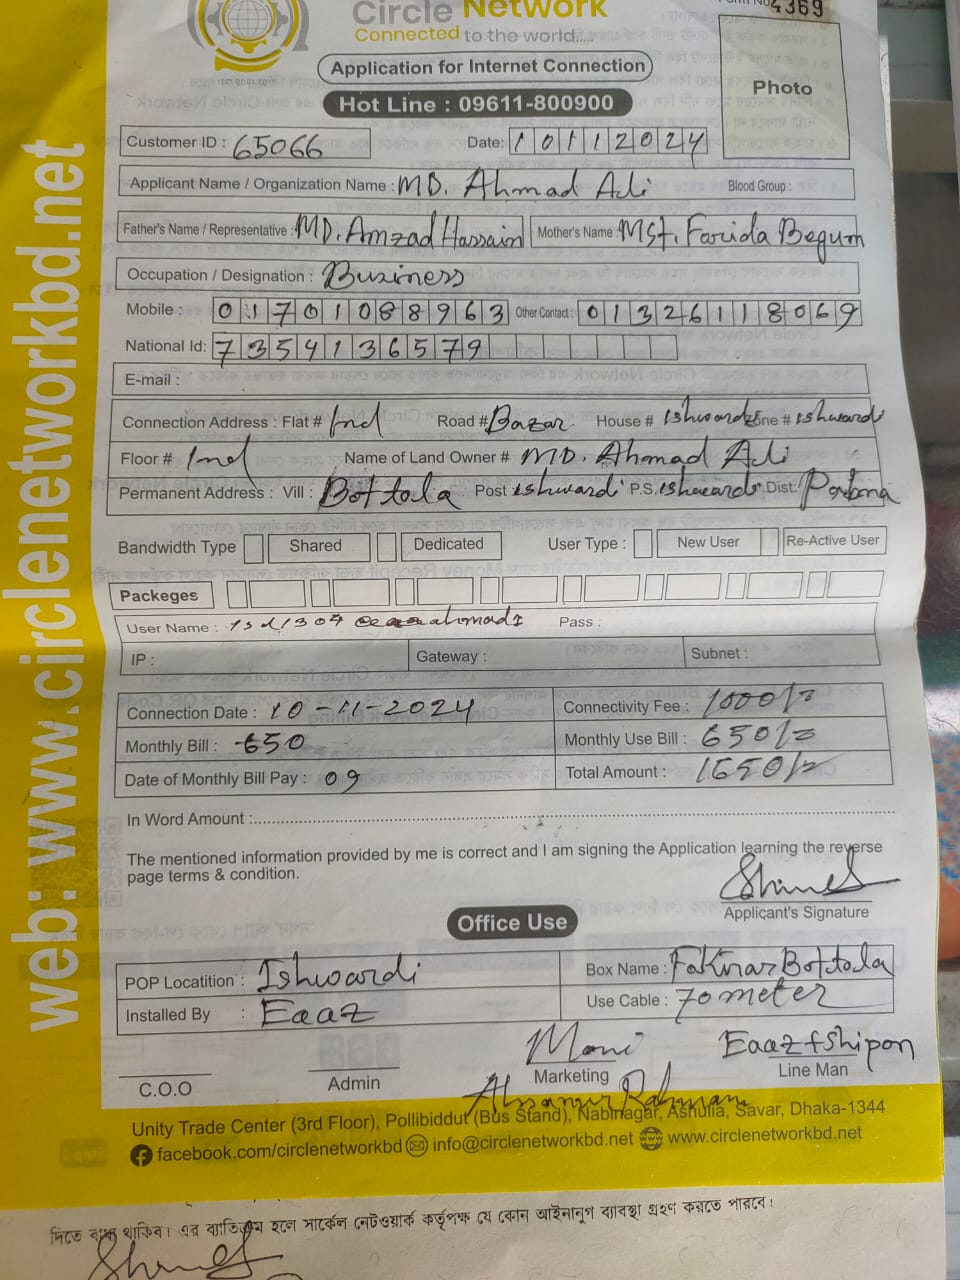 Circle Network
4369
Connected to the world....
ISO 9001:2015
Application for Internet Connection
Photo
Hot Line : 09611-800900
Customer ID : 65066 Date: 10112024
Applicant Name / Organization Name : MD. Ahmad Ali Blood Group :
Father's Name / Representative : MD. Amzad Hassain Mother's Name Mst. Farida Begum
Occupation / Designation : Business
Mobile : 01701088963 Other Contact : 01326118069
National Id: 7354136579
E-mail :
Connection Address : Flat # Ind Road # Bazar House # ishwardi Zone # ishwardi
Floor # Ind Name of Land Owner # MD. Ahmad Ali
Permanent Address : Vill : Bottola Post ishwardi P.S. ishwardi Dist: Pabna
Bandwidth Type Shared Dedicated User Type : New User Re-Active User
Packeges
User Name : Pass :
IP : Gateway : Subnet :
Connection Date : 10-11-2024 Connectivity Fee : 1000/=
Monthly Bill : 650 Monthly Use Bill : 650/=
Date of Monthly Bill Pay : 09 Total Amount : 1650/=
In Word Amount :
The mentioned information provided by me is correct and I am signing the Application learning the reverse
page terms & condition.
Applicant's Signature
Office Use
POP Locatition : Ishwardi Box Name : Fakirar Bottola
Installed By : Eaaz Use Cable : 70 meter
Moni Eaaz + Shipon
C.O.O Admin Marketing Line Man
Unity Trade Center (3rd Floor), Pollibiddut (Bus Stand), Nabinagar, Ashulia, Savar, Dhaka-1344
facebook.com/circlenetworkbd info@circlenetworkbd.net www.circlenetworkbd.net
web: www.circlenetworkbd.net
দিতে বাধ্য থাকিব। এর ব্যতিক্রম হলে সার্কেল নেটওয়ার্ক কর্তৃপক্ষ যে কোন আইনানুগ ব্যাবস্থা গ্রহণ করতে পারবে।